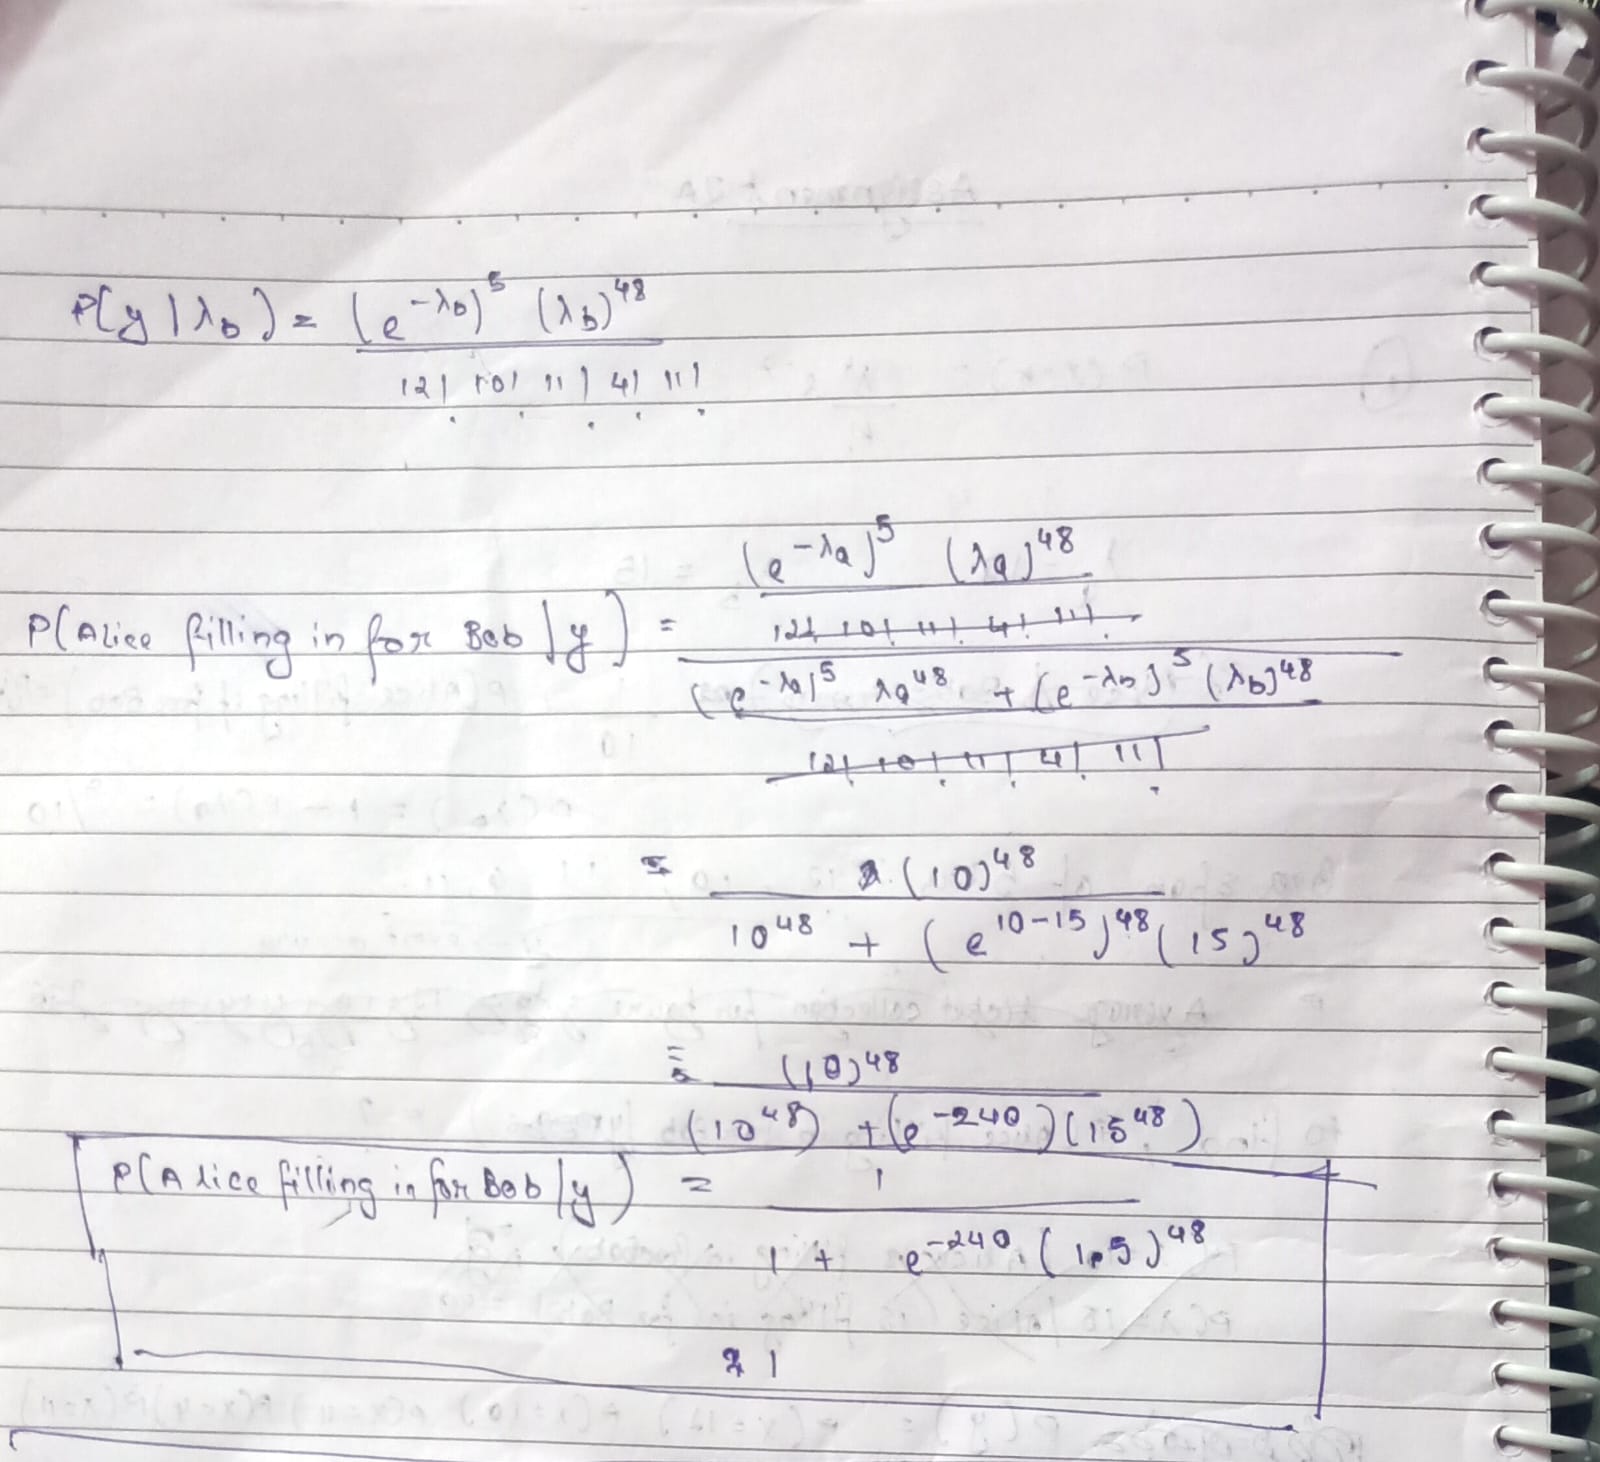 P(y | λb) = (e^-λb)^5 (λb)^48
12! 10! 11! 4! 11!
(e^-λa)^5 (λa)^48
P(Alice filling in for Bob | y) = 12! 10! 11! 4! 11!
(e^-λa)^5 λa^48 + (e^-λb)^5 (λb)^48
12! 10! 11! 4! 11!
= (10)^48
10^48 + (e^10-15)^48 (15)^48
= (10)^48
(10^48) + (e^-240)(15^48)
P(Alice filling in for Bob | y) = 1
1 + e^-240 (1.5)^48
≈ 1